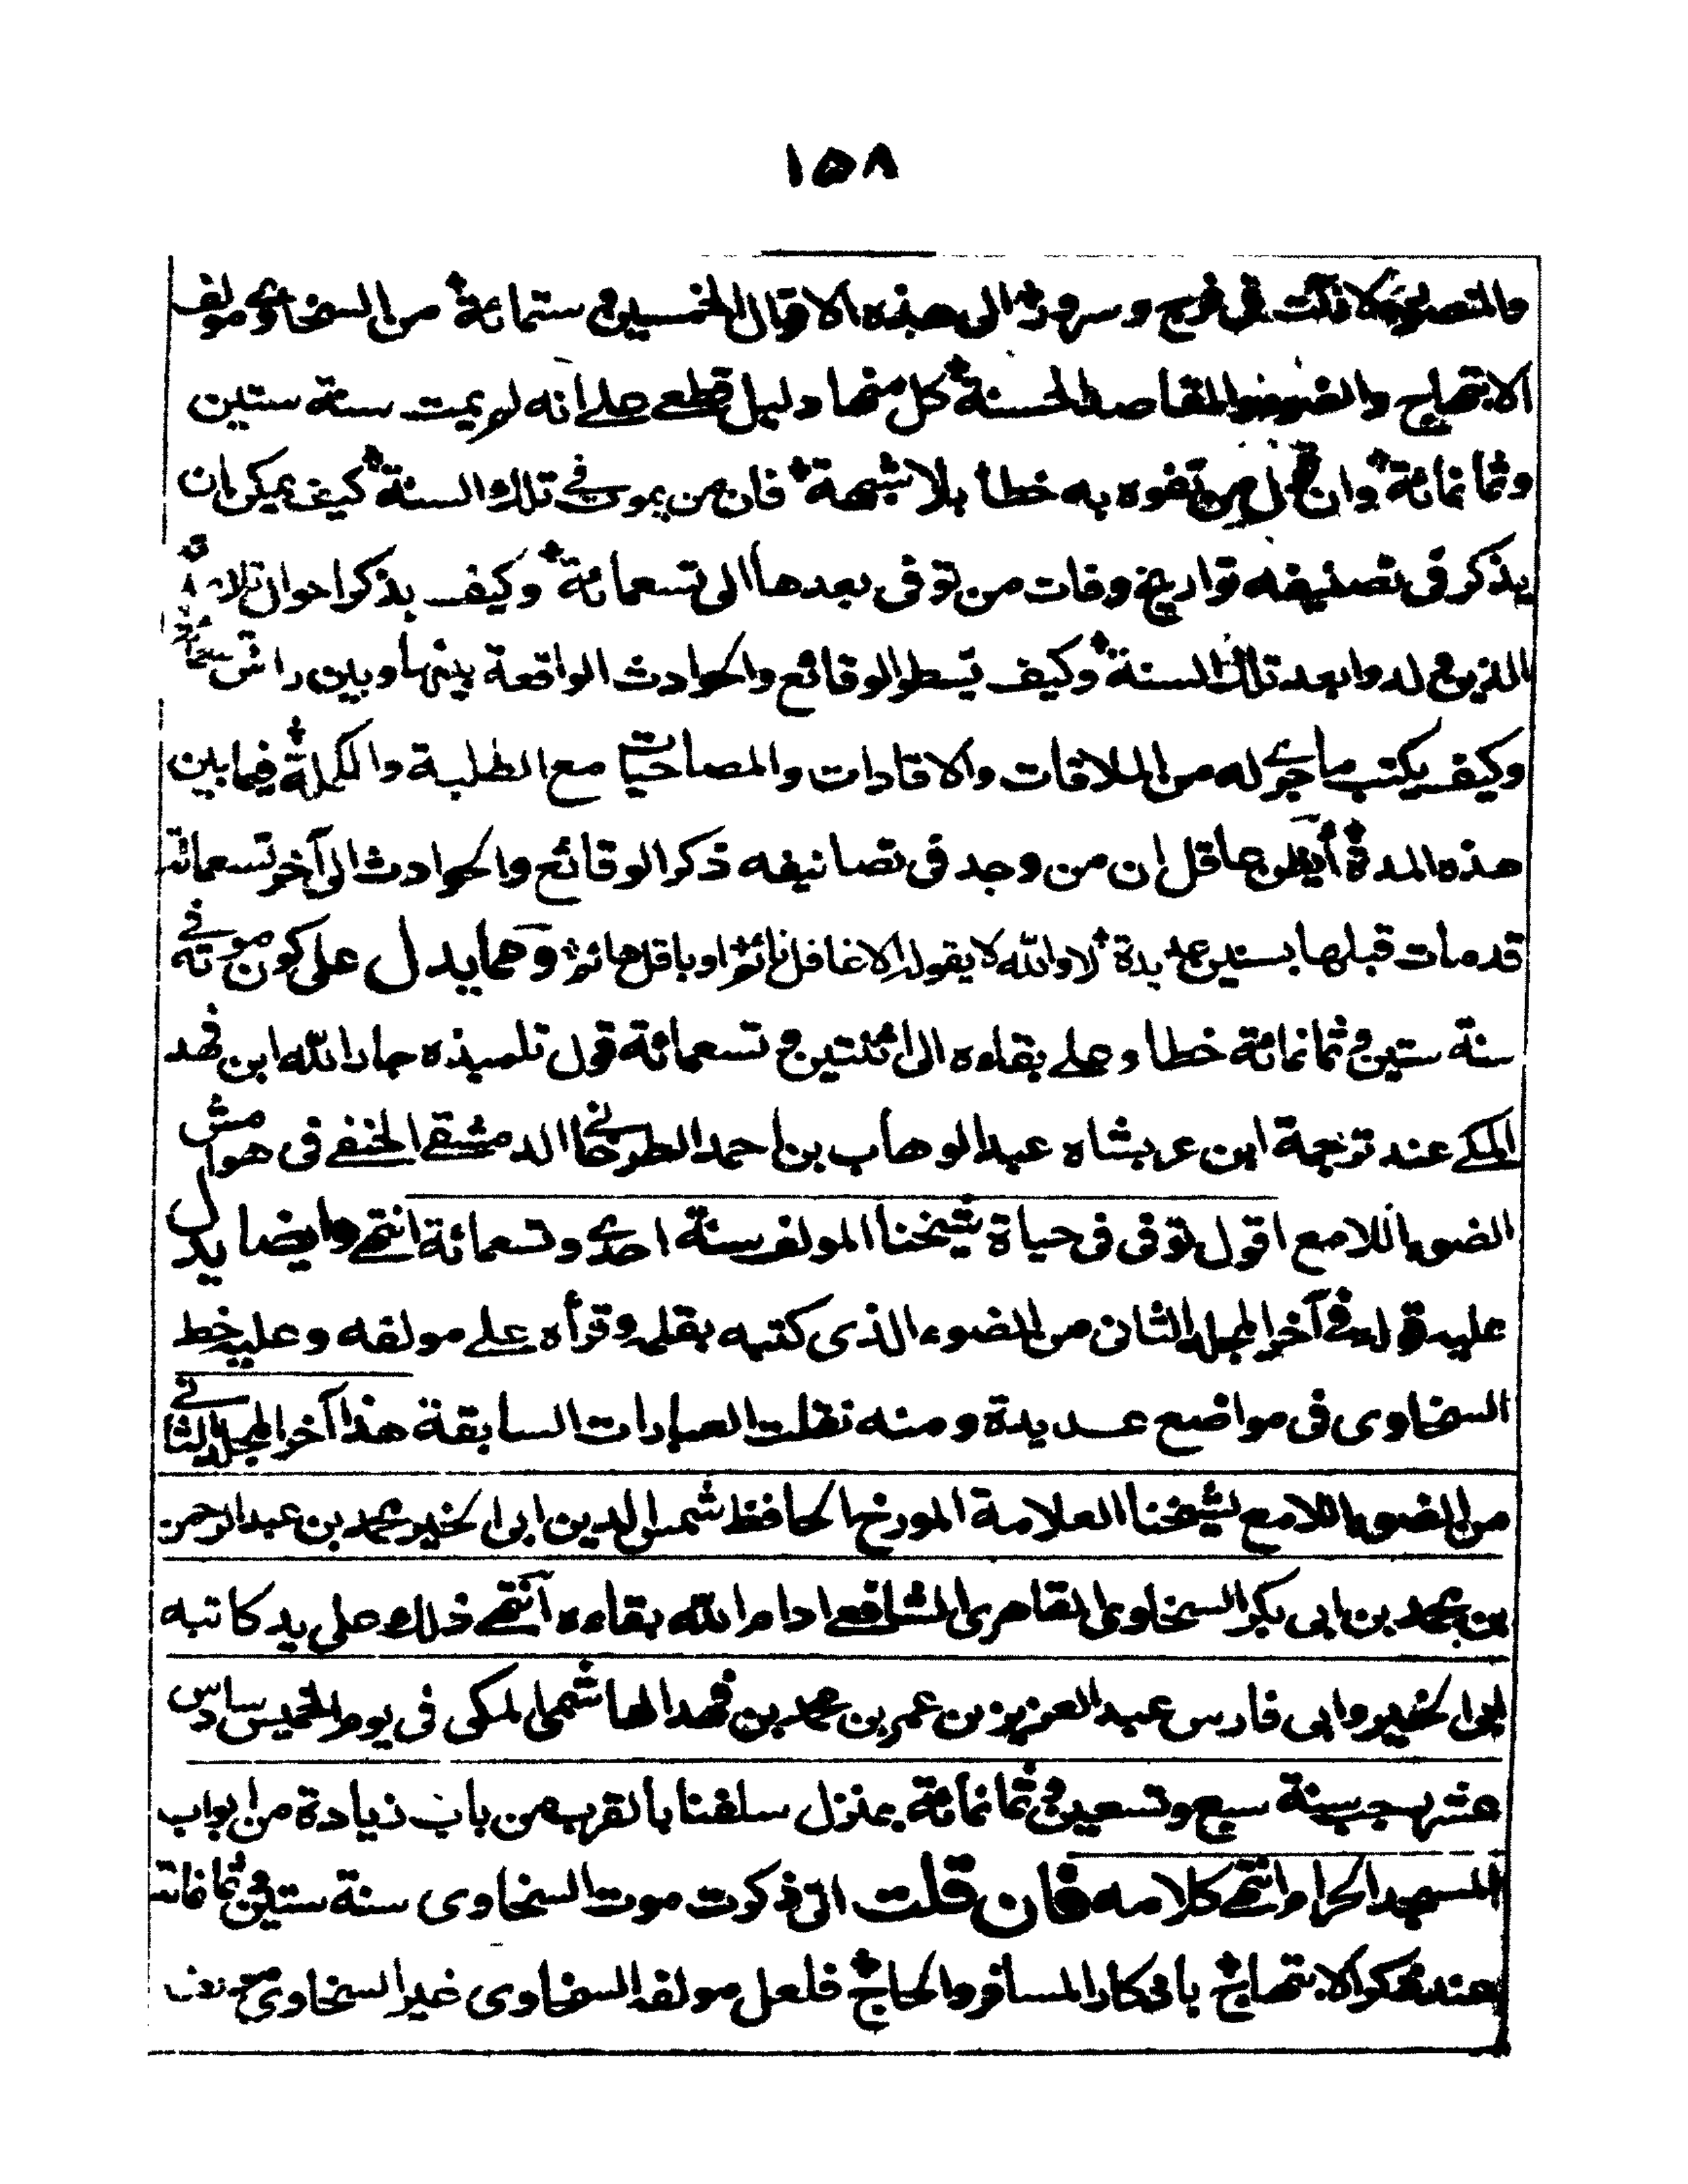 ١٥٨
والتصريح لا زلت في فرح وسرور الى هذه الاقوال الخمسين وستمائة من السخاوي مولف
الابتهاج والضوء والمقاصد الحسنة كل منها دليل قطعي على انه لم يمت سنة ستين
وثمانمائة وان قول من تفوه به خطأ بلا شبهة فان من يموت في تلك السنة كيف يمكن ان
يذكر في تصنيفه تواريخ وفات من توفى بعدها الى تسعمائة وكيف يذكر احوال
الذين ولدوا بعد تلك السنة وكيف يسطر الوقائع والحوادث الواقعة بينها وبين راس تسعمائة
وكيف يكتب ما جرى له من الملاقات والافادات والمصاحبات مع الطلبة والكملة فيما بين
هذه المدة أيظن عاقل ان من وجد في تصانيفه ذكر الوقائع والحوادث الى آخر تسعمائة
قد مات قبلها بسنين عديدة لا والله لا يقوله الا غافل نائم او باقل هائم ومما يدل على كون موته في
سنة ستين وثمانمائة خطا وعلى بقاءه الى اثنتين وتسعمائة قول تلميذه جار الله ابن فهد
المكي عند ترجمة ابن عربشاه عبد الوهاب بن احمد الطرخاني الدمشقي الحنفي في هوامش
الضوء اللامع اقول توفى في حياة شيخنا المولف سنة احدى وتسعمائة انتهى وايضا يدل
عليه قوله في آخر المجلد الثاني من الضوء الذي كتبه بقلمه وقرأه على مولفه وعليه خط
السخاوي في مواضع عديدة ومنه نقلت العبارات السابقة هذا آخر المجلد الثاني
من الضوء اللامع لشيخنا العلامة المورخ الحافظ شمس الدين ابى الخير محمد بن عبد الرحمن
بن محمد بن ابى بكر السخاوى القاهرى الشافعي ادام الله بقاءه انتهى ذلك على يد كاتبه
ابى الخير وابى فارس عبد العزيز بن عمر بن محمد بن فهد الهاشمي المكي في يوم الخميس سادس
عشر رجب سنة سبع وتسعين وثمانمائة بمنزل سلفنا بالقرب من باب زيادة من ابواب
المسجد الحرام انتهى كلامه فان قلت انى ذكرت موت السخاوى سنة ستين وثمانمائة
عند ذكر الابتهاج باذكار المسافر والحاج فلعل مولفه السخاوى غير السخاوى